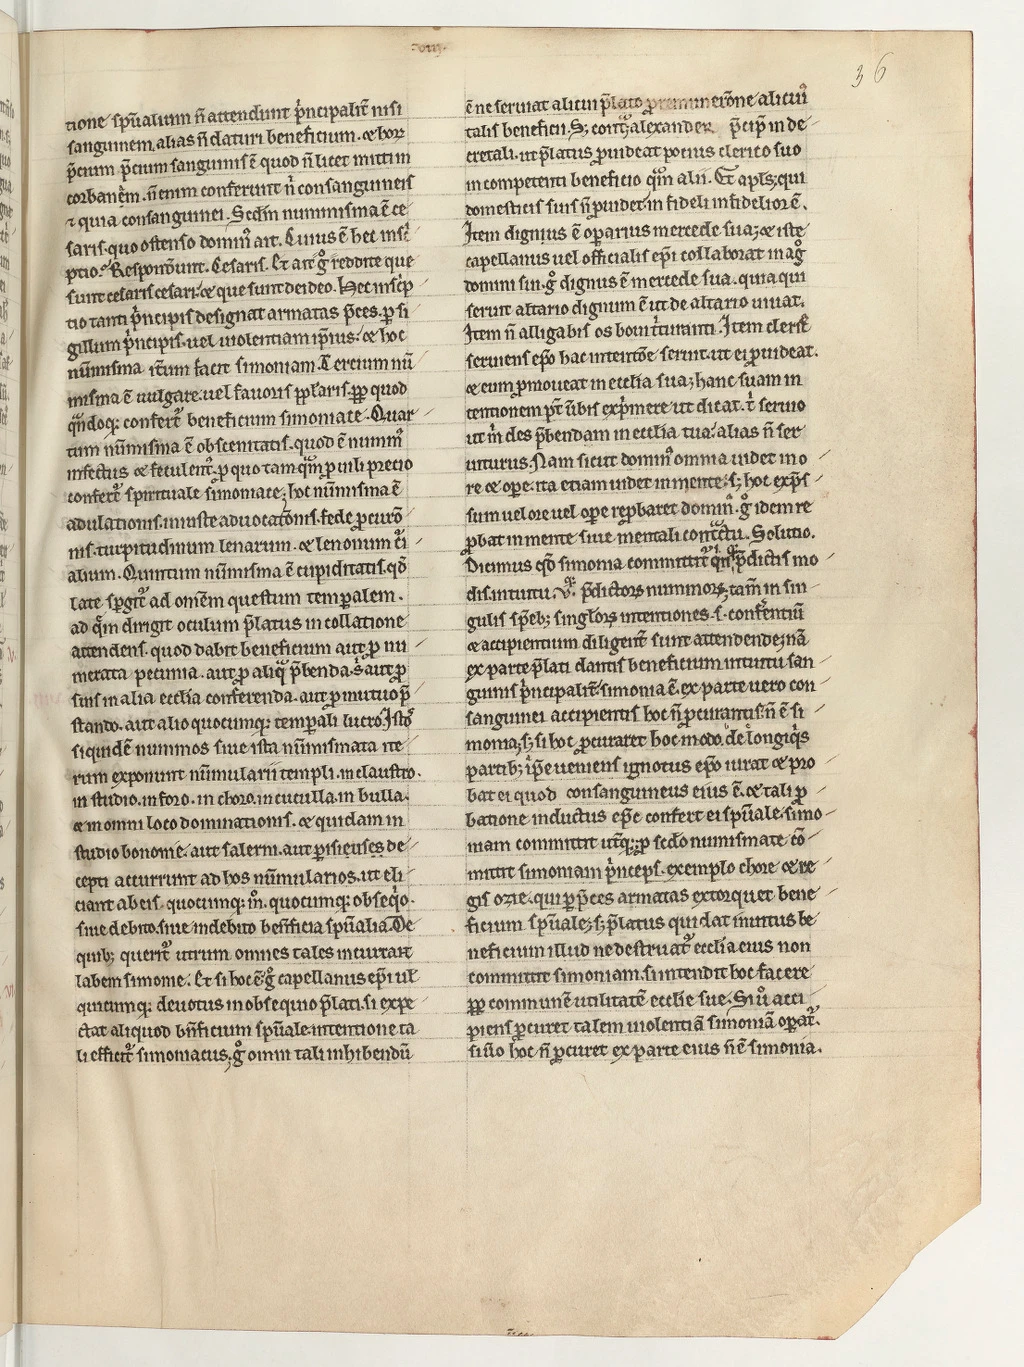 36
tione sp̄ualium n̄ attendunt p̊ncipalit̄ nisi
sanguinem. alias n̄ daturi beneficium. ⁊ horꝝ
p̄cium p̄cium sanguinis ē quod n̄ licet mitti in
corbanā. n̄ enim conferunt n̄ consanguineis
⁊ quia consanguinei. Sed̄m nummisma ē ce
saris. quo ostenso domin᷒ ait. Cuius ē hec insc̄
ptio. Respond̄unt. Cesaris. Et ait g̊ reddite que
sunt cesaris cesari. ⁊ que sunt dei deo. Hec insc̄p
tio tanti p̊ncipis designat armatas p̄ces. ꝑ si
gillum p̊ncipis. vel violentiam ip̄ius. ⁊ hoc
nūmisma it̄um facit simoniam. Tercium nū
misma ē vulgare. vel fauoris pp̄laris. ꝓp̄ quod
qn̄doqꝫ confert᷑ beneficium simoniace. Quar
tum nūmisma ē obscenitatis. quod ē numm᷒
infectus ⁊ feculent᷒. ꝑ quo tam qͣm ꝑ uili precio
confert᷑ spirituale simoniace. hoc nūmisma ē
adulationis. iniuste aduocat̄onis. fede ꝓcurō
nis. turpitudinum lenarum. ⁊ lenonum t̄i
alium. Quintum nūmisma ē cupiditatis. qd̄
late sp̄git᷑ ad om̄em questum temꝑalem.
ad qͣm dirigit oculum p̄latus in collatione
attendens. quod dabit beneficium aut ꝑ nu
merata pecunia. aut ꝑ aliqͣ p̄benda. s. aut ꝑ
suis in alia ecc̄lia conferenda. aut ꝑ mutuo p̄
stando. aut alio quocumqꝫ temꝑali lucro. Isto᷒
siquidē nummos siue ista nūmismata ite
rum exponunt nūmularii templi. in claustro.
in studio. in foro. in choro. in cuculla. in bulla.
⁊ in omni loco dominationis. ⁊ quidam in
studio bononie. aut salerni. aut parisienses de
cepti accurrunt ad hos nūmularios. ut eli
ciant ab eis. quocumqꝫ m̊. quocumqꝫ obseq̊o.
siue debito. siue indebito ben̄ficia sp̄ualia. De
quibꝫ querit᷑ utrum omnes tales incurrant
labem simonie. Et si hoc ē g̊ capellanus ep̄i ul̄
quicumqꝫ deuotus in obsequio p̄lati. si expe
ctat aliquod bn̄ficium sp̄uale. intentione ta
li efficit᷑ simoniacus. g̊ omni tali inhibendū
ē ne seruiat alicui p̄lato alicui᷒
talis beneficii. Sꝫ cont̄ͣ alexander p̄cip̄ in de
cretali. ut p̄latus ꝓuideat pocius clerico suo
in competenti beneficio qͣm alii. Et apl̄s. qui
domesticis suis n̄ ꝓuidet. infideli infidelior ē.
Item dignius ē oꝑarius mercede sua; ⁊ iste
capellanus uel officialis ep̄i collaborat in ag᷒
domini sui. g̊ dignus ē mercede sua. quia qui
seruit altario dignum ē ut de altario uiuat.
Item n̄ alligabis os boui t̊turanti. Item cleric᷒
seruiens ep̄o hac intent̄oe seruit. ut ei ꝓuideat.
⁊ eum ꝓmoueat in ecc̄lia sua; hanc suam in
tentionem pt̄ ūbis exp̊mere ut dicat. t̊ seruio
ut m̊ des p̄bendam in ecc̄lia tua. alias n̄ ser
uiturus. Nam sicut domin᷒ omnia uidet in o
re ⁊ oꝑe. ita etiam uidet in mente. sꝫ hoc exp̄s
sum uel ore uel oꝑe reꝓbaret domin᷒. g̊ idem re
ꝓbat in mente siue mentali cont̄ctu. Solutio.
Dicimus qd̄ simonia committit᷑ p̄dictis mo
dis. intuitu p̄dictoꝝ nummoꝝ. tam̄ in sin
gulis sp̄ebꝫ singl̄oꝝ intentiones. s. confer̄entiū
⁊ accipientium diligent̄ sunt attendende. nā
ex parte p̄lati dantis beneficium intuitu san
guinis p̊ncipalit̄. simonia ē. ex parte uero con
sanguinei accipientis hoc n̄ ꝓcurantis. n̄ ē si
monia; sꝫ si hoc ꝓcuraret hoc modo. de longiq̊s
partibꝫ ip̄e ueniens ignotus ep̄o iurat ⁊ pro
bat ei quod consanguineus eius ē. ⁊ tali ꝓ
batione inductus ep̄c confert ei sp̄uale. simo
niam committit ut̄qꝫ. ꝑ secd̄o numismate cō
mittit simoniam p̊nceps. exemplo chore ⁊ re
gis ozie. qui ꝑ p̄ces armatas extorquet bene
ficium sp̄uale; sꝫ p̄latus qui dat inuitus be
neficium illud ne destruat᷑ ecc̄lia eius non
committit simoniam. si intendit hoc facere
ꝓp̄ communē utilitatē ecclie sue. Si ů acci
piens ꝓcuret talem uiolentiā simoniā oꝑat᷑.
si ūo hoc n̄ ꝓcuret ex parte eius n̄ ē simonia.